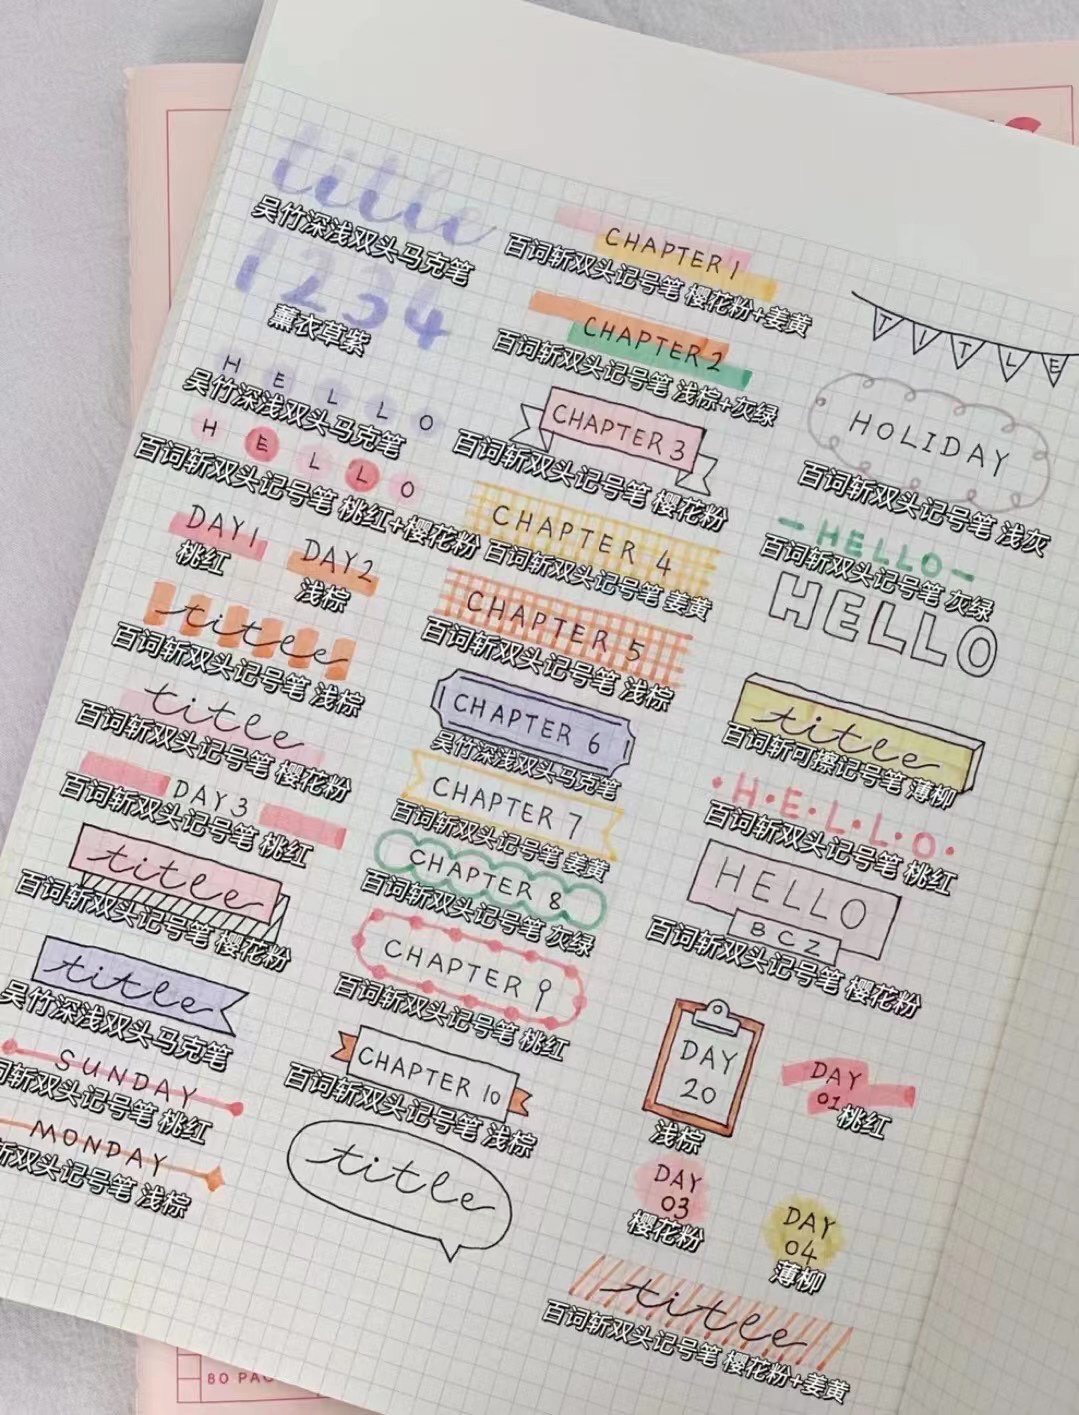 title
吴竹深浅双头马克笔
1234
薰衣草紫
HELLO
吴竹深浅双头马克笔
HELLO
百词斩双头记号笔 桃红+樱花粉
DAY1
桃红
DAY2
浅棕
title
百词斩双头记号笔 浅棕
title
百词斩双头记号笔 樱花粉
DAY3
百词斩双头记号笔 桃红
title
百词斩双头记号笔 樱花粉
title
吴竹深浅双头马克笔
SUNDAY
词斩双头记号笔 桃红
MONDAY
斩双头记号笔 浅棕
CHAPTER 1
百词斩双头记号笔 樱花粉+姜黄
CHAPTER 2
百词斩双头记号笔 浅棕+灰绿
CHAPTER 3
百词斩双头记号笔 樱花粉
CHAPTER 4
百词斩双头记号笔 姜黄
CHAPTER 5
百词斩双头记号笔 浅棕
CHAPTER 6
吴竹深浅双头马克笔
CHAPTER 7
百词斩双头记号笔 姜黄
CHAPTER 8
百词斩双头记号笔 灰绿
CHAPTER 9
百词斩双头记号笔 桃红
CHAPTER 10
百词斩双头记号笔 浅棕
title
TITLE
HOLIDAY
百词斩双头记号笔 浅灰
-HELLO-
百词斩双头记号笔 灰绿
HELLO
title
百词斩可擦记号笔 薄柳
·H·E·L·L·O·
百词斩双头记号笔 桃红
HELLO
BCZ
百词斩双头记号笔 樱花粉
DAY
20
浅棕
DAY
01
桃红
DAY
03
樱花粉
DAY
04
薄柳
title
百词斩双头记号笔 樱花粉+姜黄
80 PAG